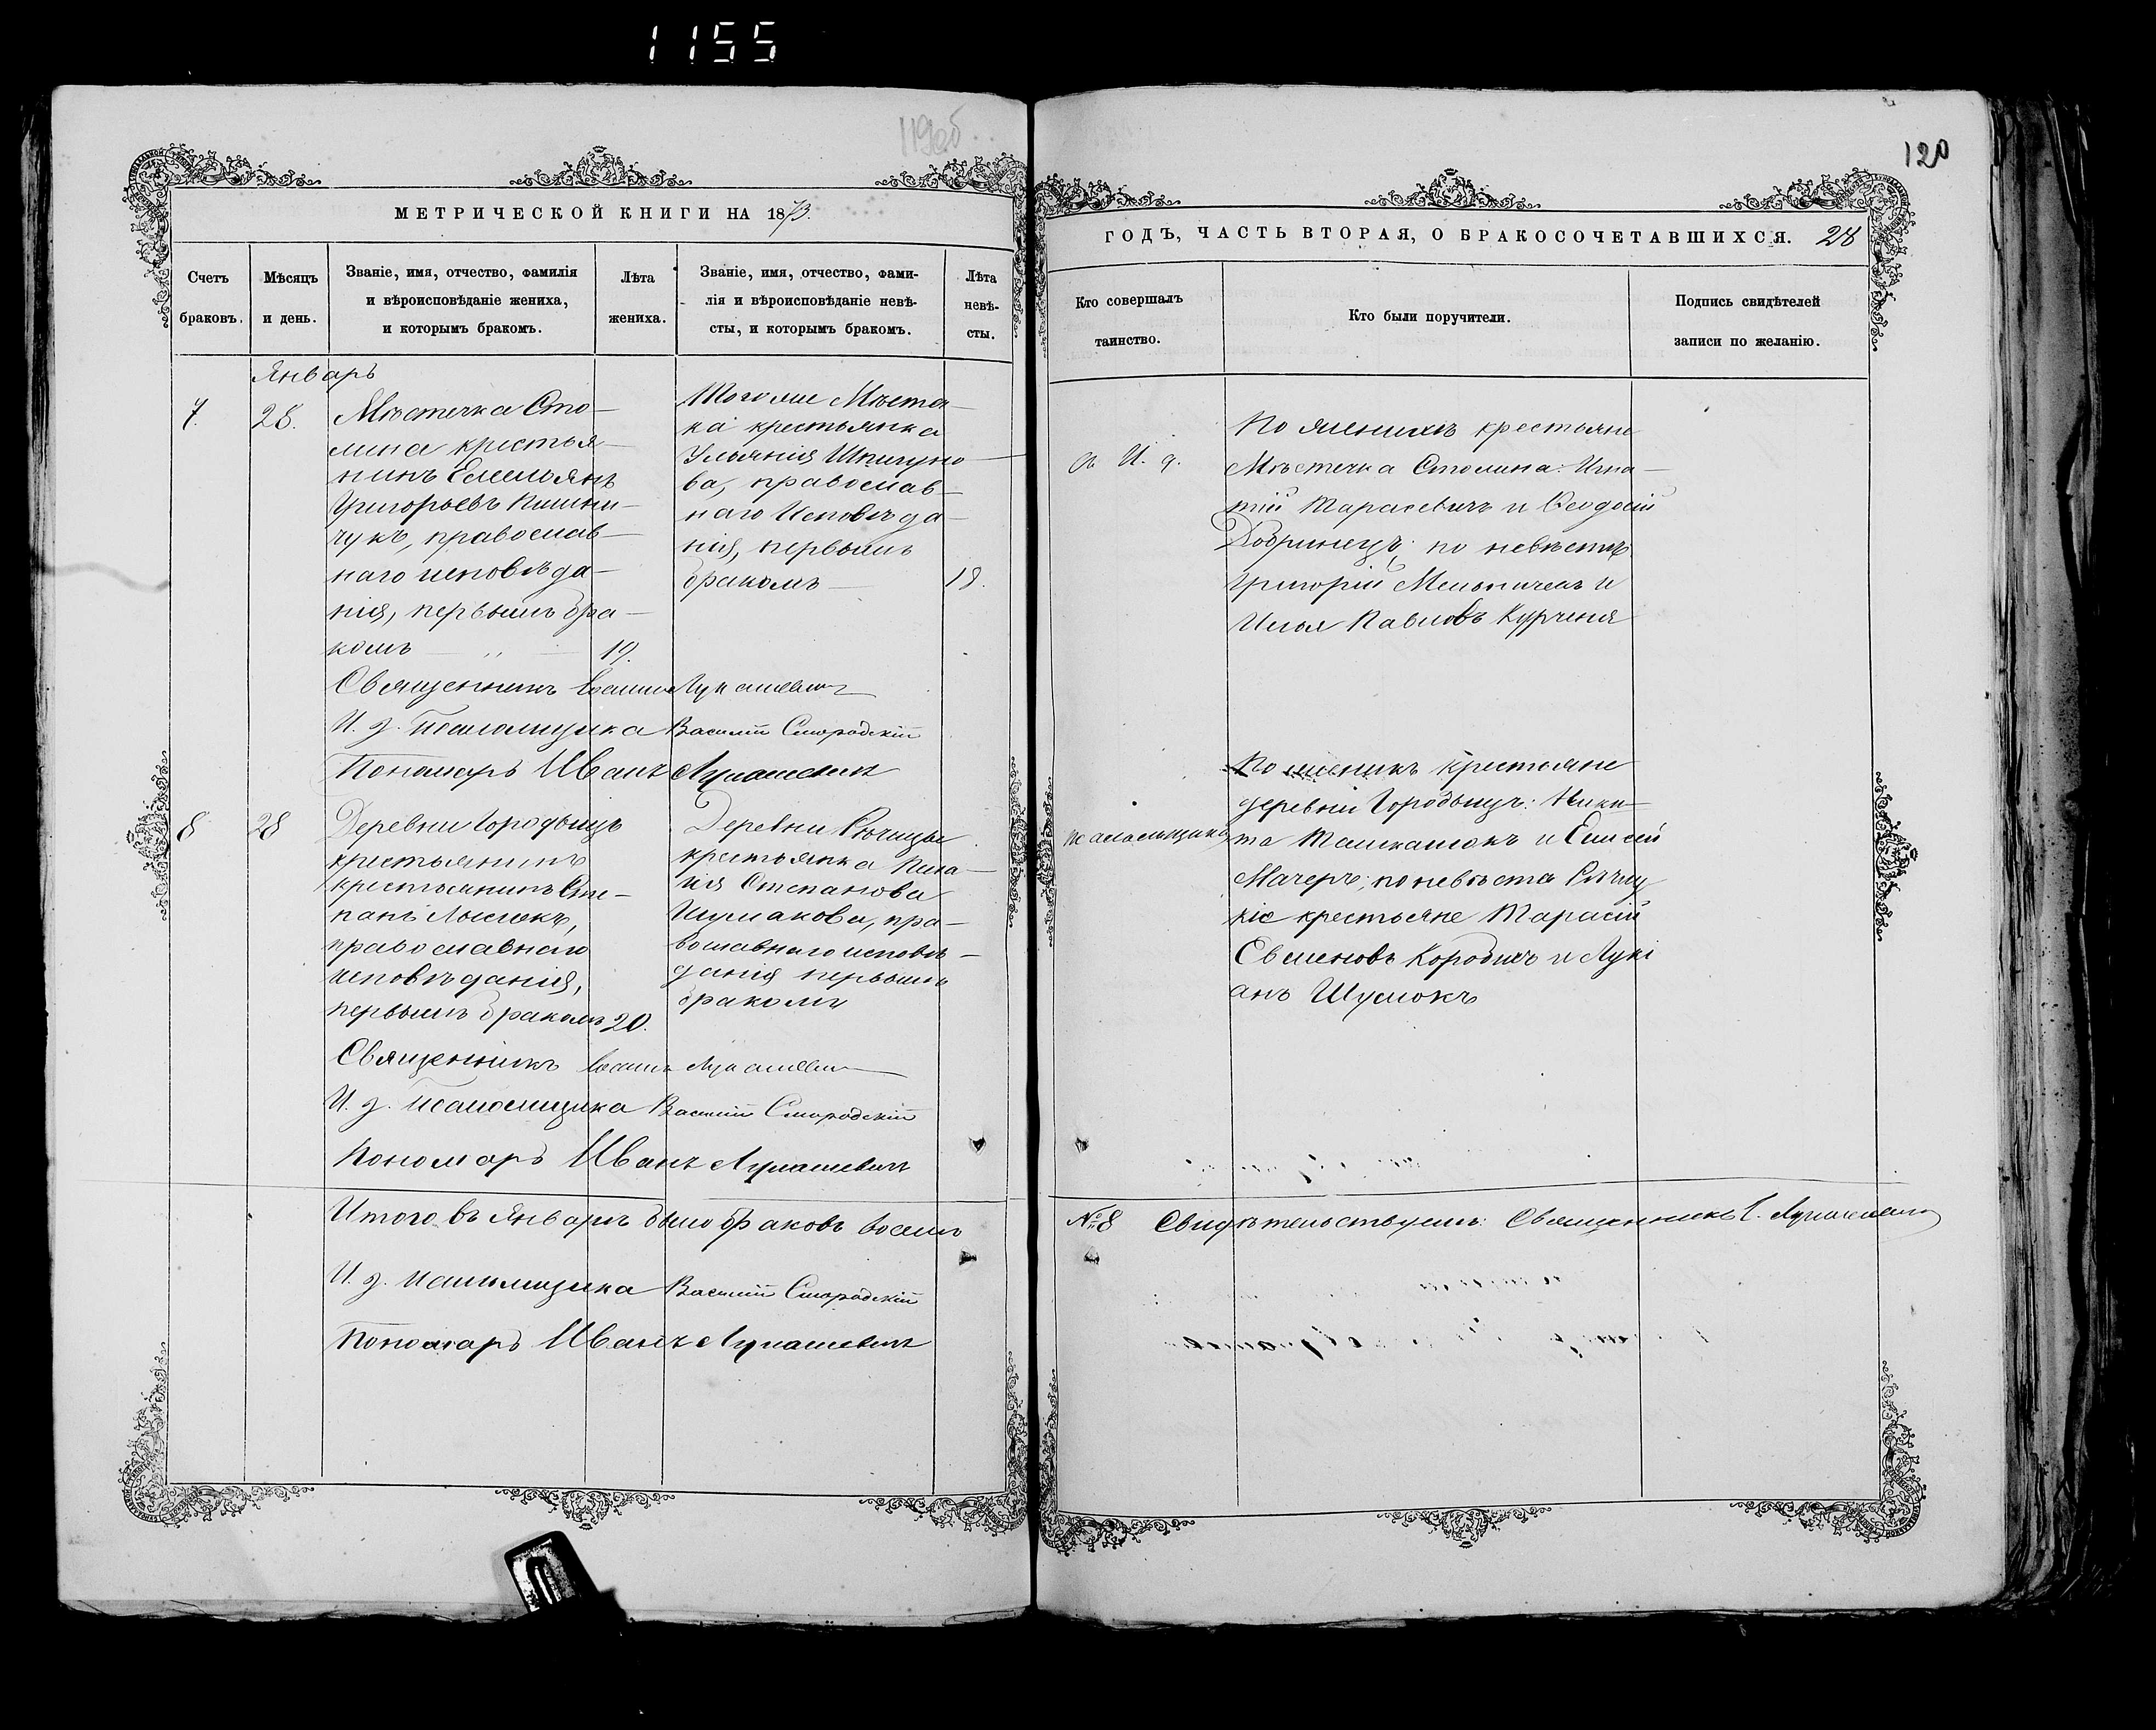 1155
119об
120
МЕТРИЧЕСКОЙ КНИГИ НА 1873
Счетъ браковъ.
Мѣсяцъ и день.
Званіе, имя, отчество, фамилія
и вѣроисповѣданіе жениха,
и которымъ бракомъ.
Лѣта жениха.
Званіе, имя, отчество, фами-
лія и вѣроисповѣданіе невѣ-
сты, и которымъ бракомъ.
Лѣта невѣ-
сты.
Январь
7. 28.
Мѣстечка Сто-
лина крестья-
нинъ Емельянъ
Григорьевъ
чукъ, православ-
наго исповѣда-
нія, первымъ бра-
комъ — „ — 19.
Тогоже Мѣстеч-
ка крестьянка
Ульянія
ва, православ-
наго Исповѣда-
нія, первымъ
бракомъ — 18.
Священникъ Іоаннъ Лукашевичъ
И. д. Псаломщика Василій Смородскій
Пономарь Иванъ Лукашевичъ
8 28
Деревни Городьищъ
крестьянинъ
крестьянинъ Сте-
панъ
православнаго
исповѣданія,
первымъ бракомъ 20.
Деревни Рѣчицы
крестьянка
Степанова
Шумакова, пра-
вославнаго исповѣ-
данія первымъ
бракомъ
Священникъ Іоаннъ Лукашевичъ
И. д. Псаломщика Василій Смородскій
Пономарь Иванъ Лукашевичъ
Итого въ Январѣ было браковъ восемь
И. д. Псаломщика Василій Смородскій
Пономарь Иванъ Лукашевичъ
ГОДЪ, ЧАСТЬ ВТОРАЯ, О БРАКОСОЧЕТАВШИХСЯ. 28
Кто совершалъ
таинство.
Кто были поручители.
Подпись свидѣтелей
записи по желанію.
съ И. д.
По женихѣ крестьяне
Мѣстечка Столина: Игна-
тій Тарасевичъ и Ѳеодосій
Добринецъ; по невѣстѣ
Григорій Мельничекъ и
Илья Павловъ Курченя
псаломщика
По женихѣ крестьяне
деревни Городьищъ: Ники-
та и Елисей
Мачеръ; по невѣстѣ Рѣчиц
кіе крестьяне Тарасій
Евменовъ Коробичъ и Лукі
анъ Шумокъ
№ 8 Свидѣтельствуемъ: Священникъ І. Лукашевичъ